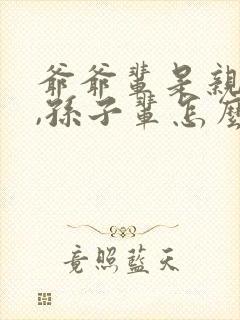 爺爺輩是親
,孫子輩怎麼
竟照藍天